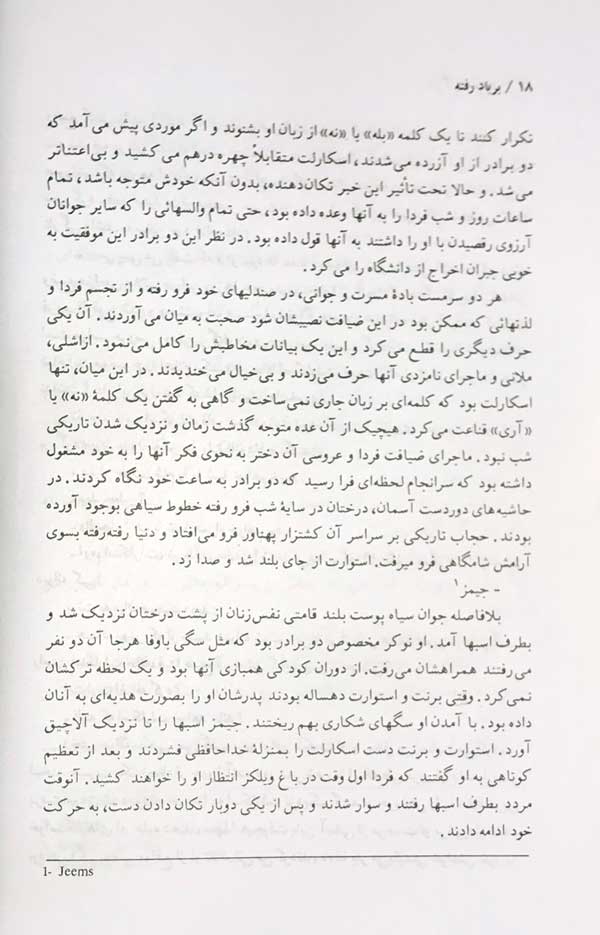 ۱۸ / بر باد رفته
تکرار کنند تا یک کلمه «بله» یا «نه» از زبان او بشنوند و اگر موردی پیش می‌آمد که
دو برادر از او آزرده می‌شدند، اسکارلت متقابلاً چهره درهم می‌کشید و بی‌اعتناتر
می‌شد. و حالا تحت تأثیر این خبر تکان‌دهنده، بدون آنکه خودش متوجه باشد، تمام
ساعات روز و شب فردا را به آنها وعده داده بود، حتی تمام والسهائی را که سایر جوانان
آرزوی رقصیدن با او را داشتند به آنها قول داده بود. در نظر این دو برادر این موفقیت به
خوبی جبران اخراج از دانشگاه را می‌کرد.
هر دو سرمست بادهٔ مسرت و جوانی، در صندلیهای خود فرو رفته و از تجسم فردا و
لذتهائی که ممکن بود در این ضیافت نصیبشان شود صحبت به میان می‌آوردند. آن یکی
حرف دیگری را قطع می‌کرد و این یک بیانات مخاطبش را کامل می‌نمود. ازاشلی،
ملانی و ماجرای نامزدی آنها حرف می‌زدند و بی‌خیال می‌خندیدند. در این میان، تنها
اسکارلت بود که کلمه‌ای بر زبان جاری نمی‌ساخت و گاهی به گفتن یک کلمهٔ «نه» یا
«آری» قناعت می‌کرد. هیچیک از آن عده متوجه گذشت زمان و نزدیک شدن تاریکی
شب نبود. ماجرای ضیافت فردا و عروسی آن دختر به نحوی فکر آنها را به خود مشغول
داشته بود که سرانجام لحظه‌ای فرا رسید که دو برادر به ساعت خود نگاه کردند. در
حاشیه‌های دوردست آسمان، درختان در سایهٔ شب فرو رفته خطوط سیاهی بوجود آورده
بودند. حجاب تاریکی بر سراسر آن کشتزار پهناور فرو می‌افتاد و دنیا رفته‌رفته بسوی
آرامش شامگاهی فرو میرفت. استوارت از جای بلند شد و صدا زد.
- جیمز۱
بلافاصله جوان سیاه پوست بلند قامتی نفس‌زنان از پشت درختان نزدیک شد و
بطرف اسبها آمد. او نوکر مخصوص دو برادر بود که مثل سگی باوفا هرجا آن دو نفر
می‌رفتند همراهشان می‌رفت. از دوران کودکی همبازی آنها بود و یک لحظه ترکشان
نمی‌کرد. وقتی برنت و استوارت دهساله بودند پدرشان او را بصورت هدیه‌ای به آنان
داده بود. با آمدن او سگهای شکاری بهم ریختند. جیمز اسبها را تا نزدیک آلاچیق
آورد. استوارت و برنت دست اسکارلت را بمنزلهٔ خداحافظی فشردند و بعد از تعظیم
کوتاهی به او گفتند که فردا اول وقت در باغ ویلکز انتظار او را خواهند کشید. آنوقت
مردد بطرف اسبها رفتند و سوار شدند و پس از یکی دوبار تکان دادن دست، به حرکت
خود ادامه دادند.
1- Jeems